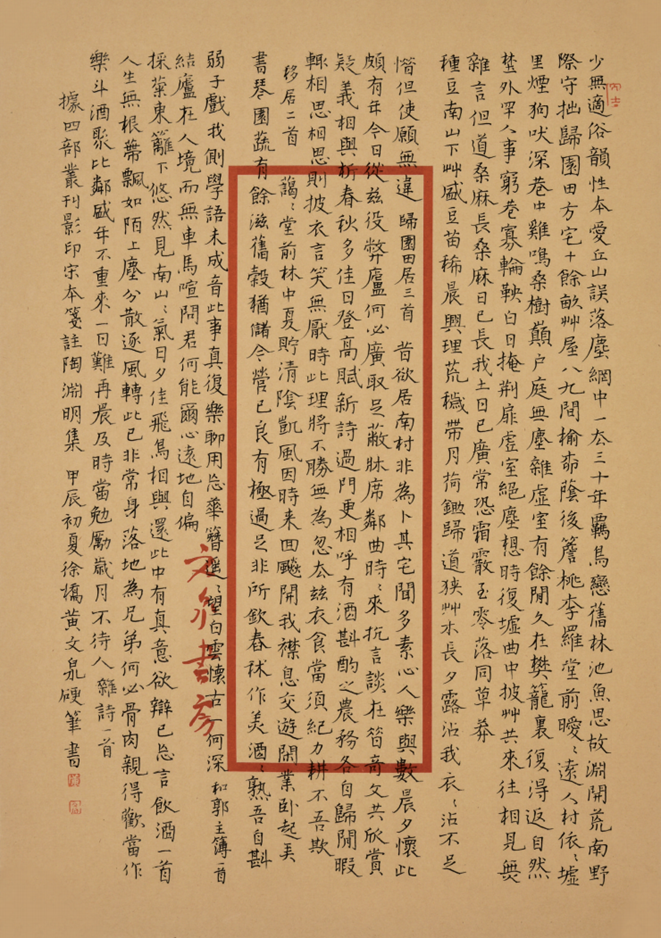 少無適俗韻性本愛丘山誤落塵網中一去三十年羈鳥戀舊林池魚思故淵開荒南野
際守拙歸園田方宅十餘畝艸屋八九間榆柳蔭後簷桃李羅堂前曖:遠人村依:墟
里煙狗吠深巷中雞鳴桑樹巔戶庭無塵雜虛室有餘閒久在樊籠裏復得返自然
埜外罕人事窮巷寡輪鞅白日掩荊扉虛室絕塵想時復墟曲中披艸共來往相見無
雜言但道桑麻長桑麻日已長我土日已廣常恐霜霰至零落同草莽
種豆南山下艸盛豆苗稀晨興理荒穢帶月荷鋤歸道狹艸木長夕露沾我衣:沾不足
惜但使願無違 歸園田居三首 昔欲居南村非為卜其宅聞多素心人樂與數晨夕懷此
頗有年今日從茲役弊廬何必廣取足蔽牀席鄰曲時:來抗言談在昔奇文共欣賞
疑義相與析春秋多佳日登高賦新詩過門更相呼有酒斟酌之農務各自歸閒暇
輒相思相思則披衣言笑無厭時此理將不勝無為忽去茲衣食當須紀力耕不吾欺
移居二首 藹:堂前林中夏貯清陰凱風因時來回飈開我襟息交遊閑業卧起弄
書琴園蔬有餘滋舊穀猶儲今營己良有極過足非所欽舂秫作美酒:熟吾自斟
弱子戲我側學語未成音此事真復樂聊用忘華簪遙:望白雲懷古一何深 和郭主簿一首
結廬在人境而無車馬喧問君何能爾心遠地自偏
採菊東籬下悠然見南山:氣日夕佳飛鳥相與還此中有真意欲辯已忘言 飲酒一首
人生無根蒂飄如陌上塵分散逐風轉此已非常身落地為兄弟何必骨肉親得歡當作
樂斗酒聚比鄰盛年不重來一日難再晨及時當勉勵歲月不待人 雜詩一首
據四部叢刊影印宋本箋註陶淵明集 甲辰初夏徐橋黃文泉硬筆書
文泉書房